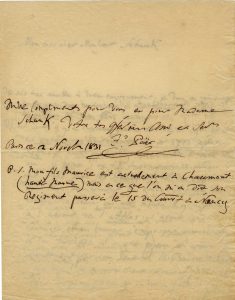 Mille complimens pour vous et pour Madame
Schunk Votre très affectionné ami et Serv
Paris ce 12 Novbre 1831 F. Paër
P.S. Mon fils Maurice est actuellement à Chaumont
(haute Marne) mais en ce que l'on m'a dit son
Régiment passera le 15 du Court à Nancy